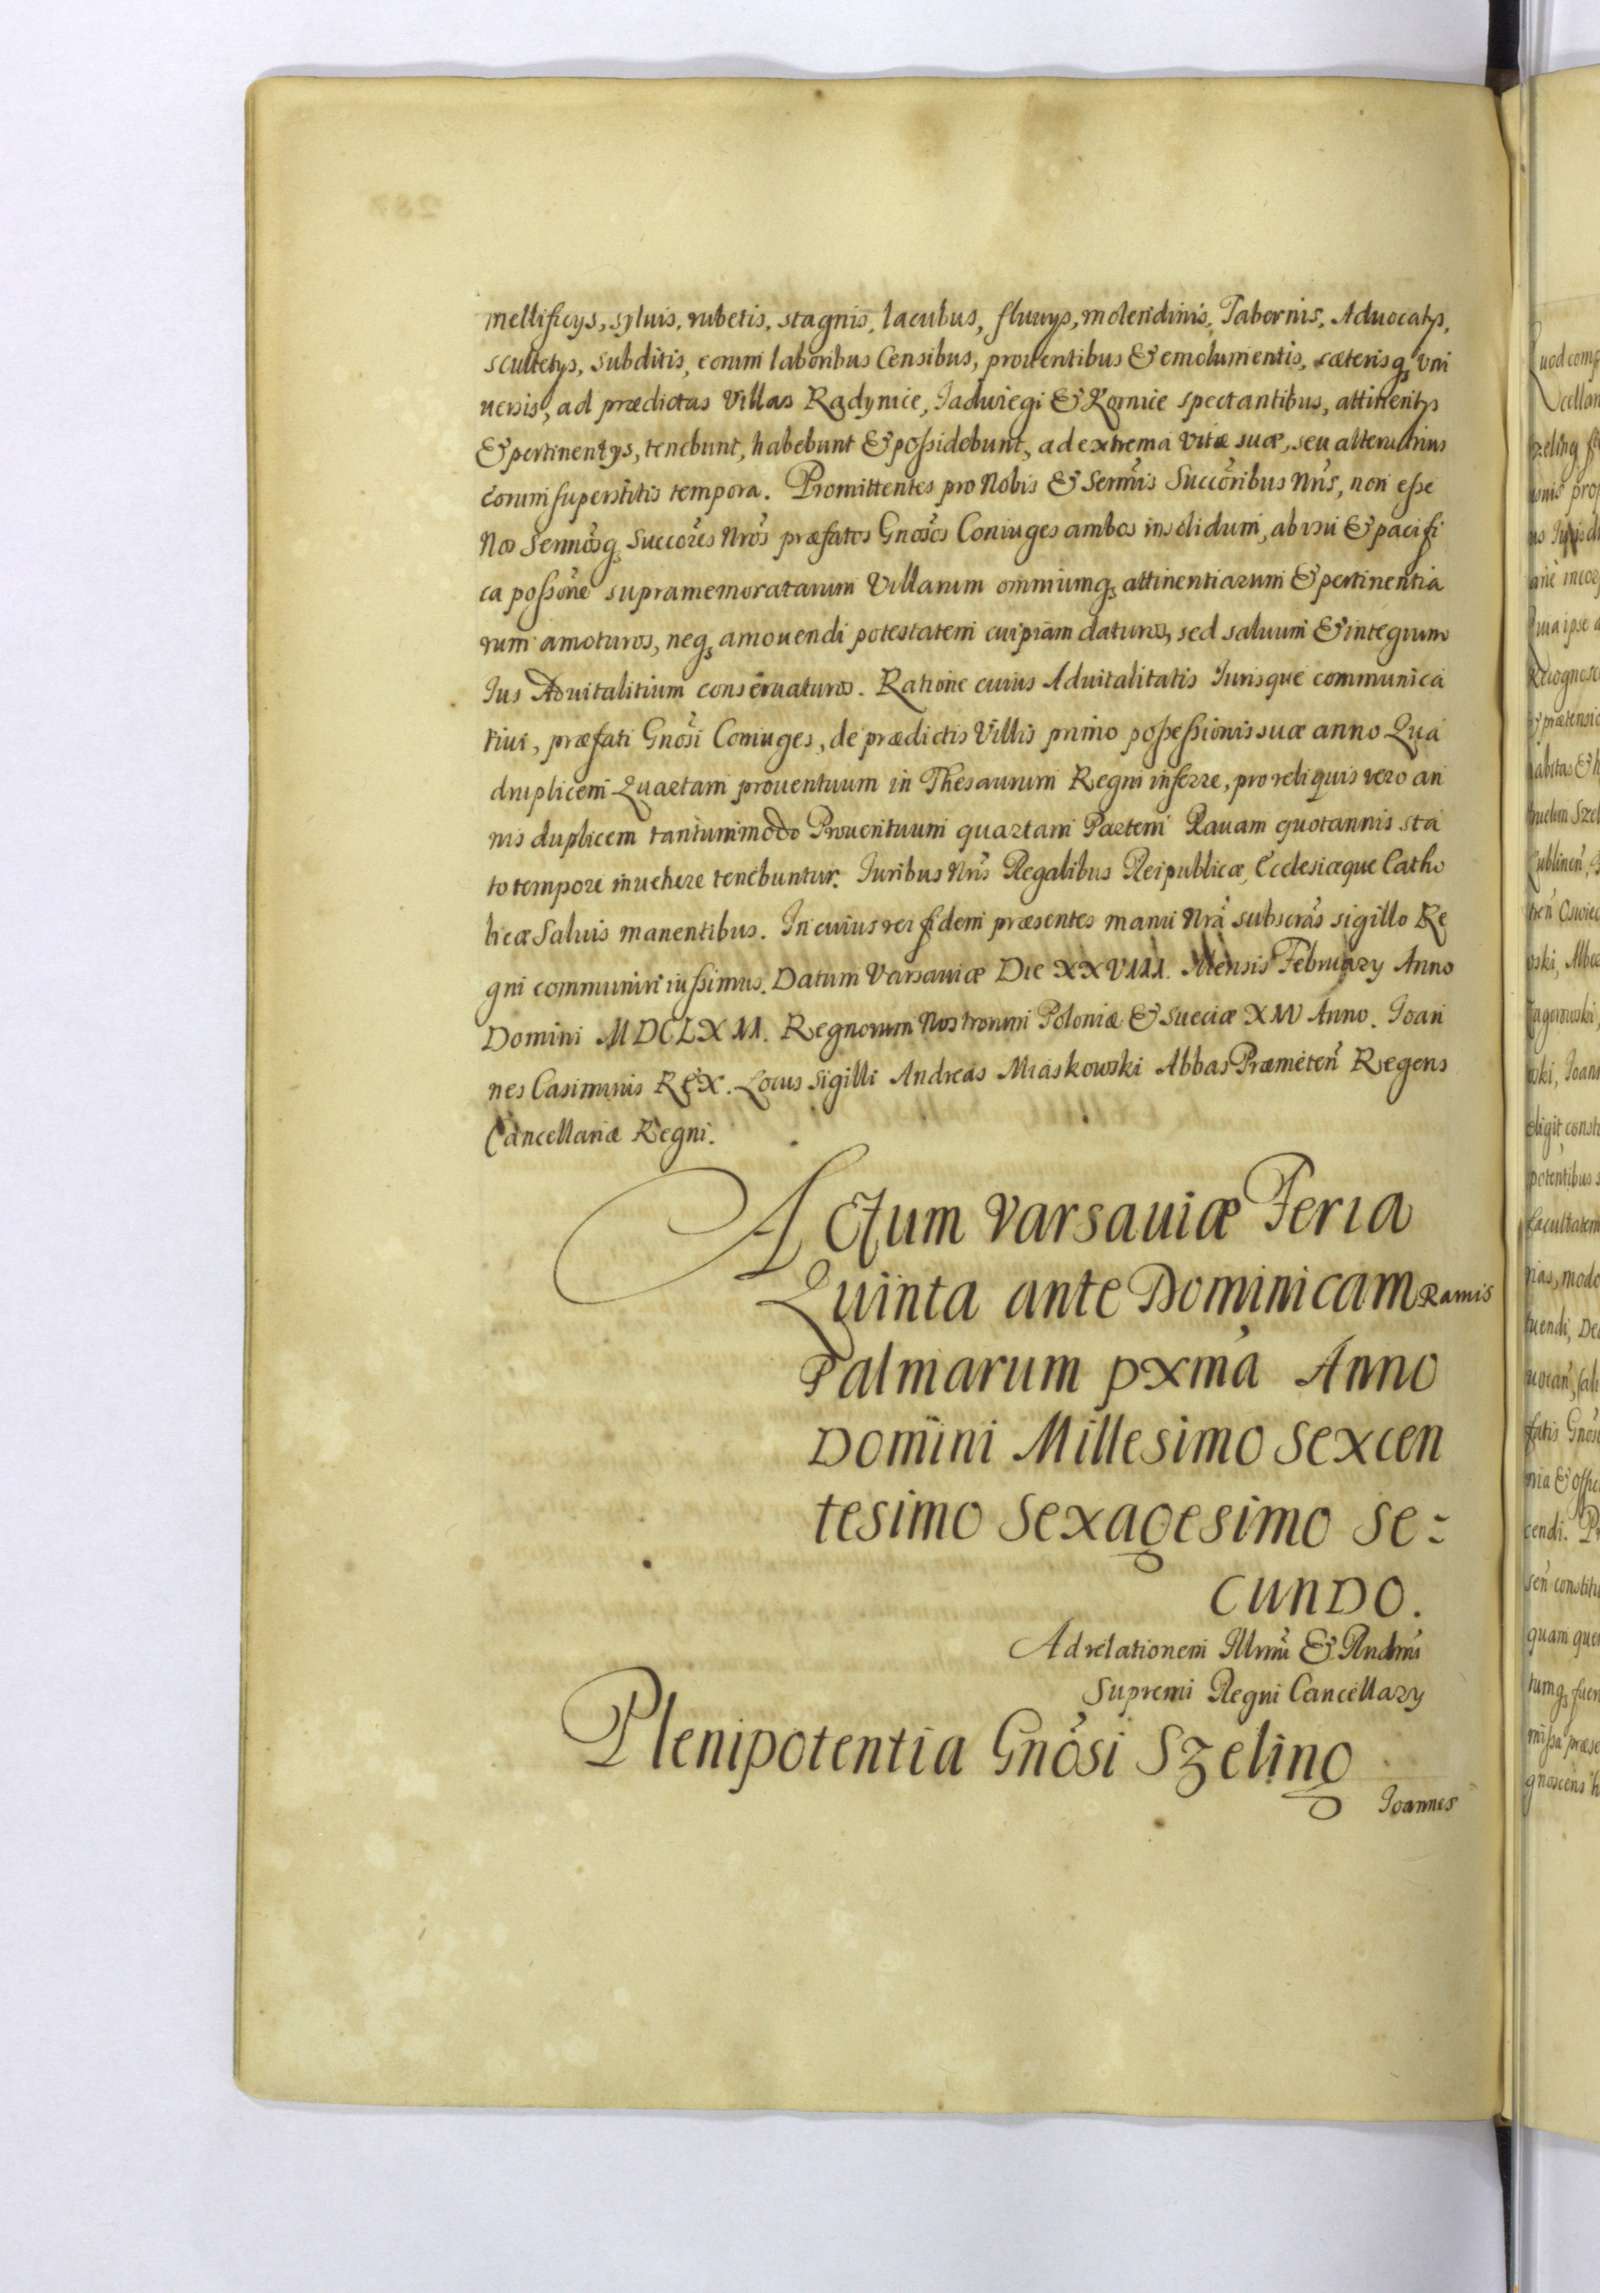 mellificys, syluis, rubetis, stagnis, lacubus, fluuys, molendinis, Tabernis, Aduocatys,
scultetys, subditis, eorum laboribus Censibus, prouentibus & emolumentis, cæterisq, vni
uersis, ad prædictas Villas Radynice, Jadwiegi & Kornice spectantibus, attinentys
& pertinentys, tenebunt, habebunt & possidebunt, ad extrema vitæ suæ, seu alterutrius
eorum superstitis tempora. Promittentes pro Nobis & Sermis Succoribus Nris, non esse
Nos Sermosq, Succores Nros præfatos Gnosos Coniuges ambos insolidum, ab usu & pacifi
ca possone supramemoratarum Villarum omniumq, attinentiarum & pertinentia
rum amoturos, neq, amouendi potestatem cuipiam daturos, sed saluum & integrum
Ius Aduitalitium conseruaturos. Ratione cuius Aduitalitatis Jurisque communica
tiui, præfati Gnosi Coniuges, de prædictis Villis primo possessionis suæ anno Qua
druplicem Quartam prouentuum in Thesaurum Regni inferre, pro reliquis vero an
nis duplicem tantummodo Prouentuum quartam Partem Rauam quotannis sta
to tempore inuehere tenebuntur. Juribus Nris Regalibus Reipublicæ, Ecclesiæque Catho
licæ Saluis manentibus. In cuius rei fidem præsentes manu Nra subscras sigillo Re
gni communiri iussimus. Datum Varsauiæ Die XXVIII. Mensis February Anno
Domini MDCLXII. Regnorum Nostrorum Poloniæ & Sueciæ XIV Anno. Joan
nes Casimirus REX. Locus Sigilli Andreas Miaskowski Abbas Præmeten Regens
Cancellariæ Regni.
Actum Varsauiæ Feria
Quinta ante Dominicam Ramis
Palmarum pxma Anno
Domini Millesimo Sexcen
tesimo Sexagesimo Se-
cundo.
Ad relationem Illrmi & Rndmi
Supremi Regni Cancellary
Plenipotentia Gnosi Szeling
Joannes